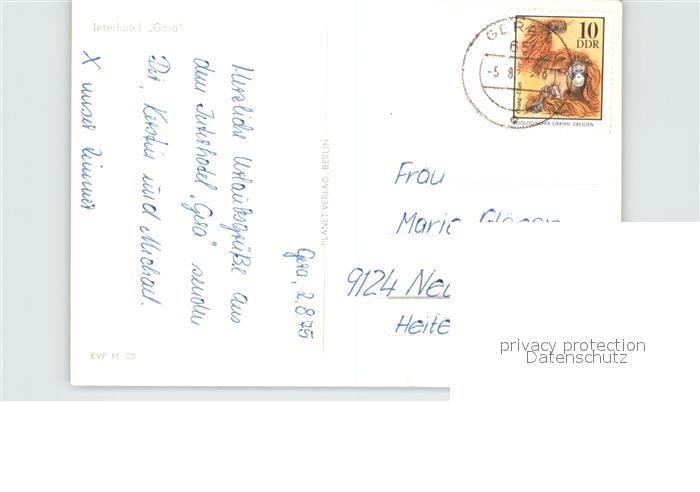 Interhotel „Gera"
Gera, 2.8.75
Herzliche Urlaubsgrüße aus
dem Interhotel „Gera" senden
Dir, Kerstin und Michael.
X unser Zimmer
EVP M -,25
PLANET-VERLAG, BERLIN
GERA
65
-5.8.
10
DDR
ZOOLOGISCHER GARTEN DRESDEN
Frau
Marie
9124 Neu
Heite
privacy protection
Datenschutz